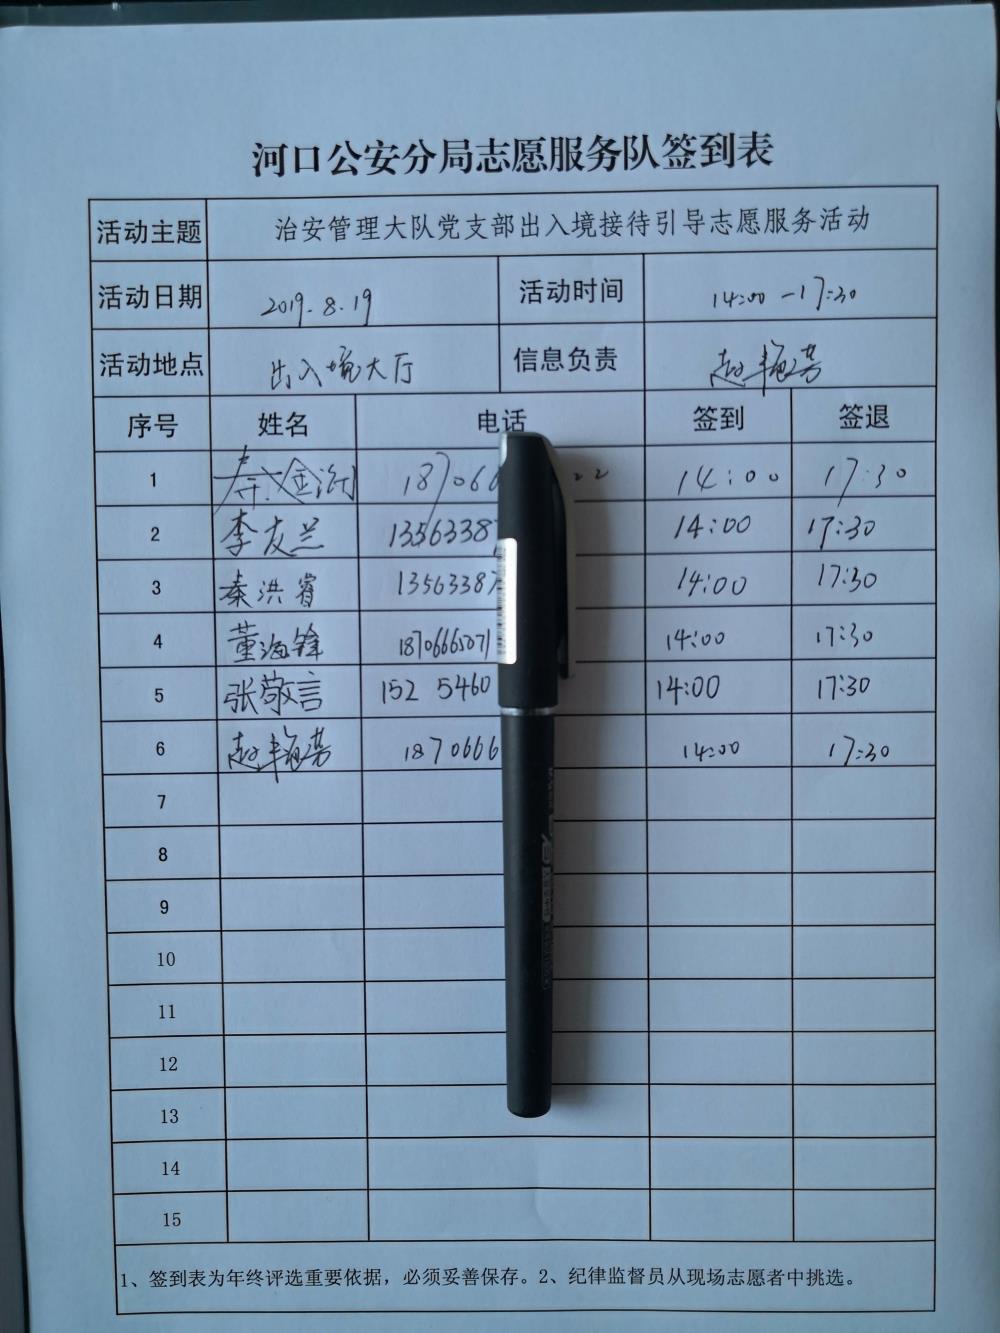 河口公安分局志愿服务队签到表
活动主题 治安管理大队党支部出入境接待引导志愿服务活动
活动日期 2019.8.19 活动时间 14:00-17:30
活动地点 出入境大厅 信息负责 赵艳芳
序号 姓名 电话 签到 签退
1 187066 22 14:00 17:30
2 李友兰 13563387 14:00 17:30
3 秦洪睿 13563387 14:00 17:30
4 董海锋 18706665071 14:00 17:30
5 张敬言 152 5460 14:00 17:30
6 赵艳芳 1870666 14:00 17:30
7
8
9
10
11
12
13
14
15
1、签到表为年终评选重要依据，必须妥善保存。2、纪律监督员从现场志愿者中挑选。